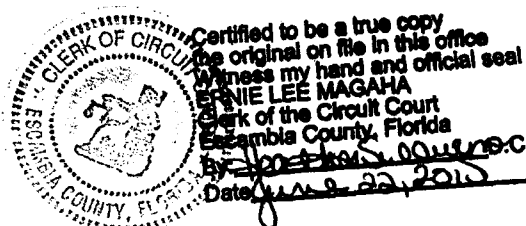 CLERK OF CIRCUI
ESCAMBIA COUNTY, FLORIDA
Certified to be a true copy
the original on file in this office
Witness my hand and official seal
ERNIE LEE MAGAHA
Clerk of the Circuit Court
Escambia County, Florida
By D.C
Date June 22, 2015